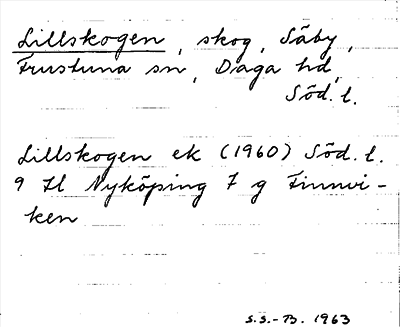 Lillskogen, skog, Säby,
Frustuna sn, Daga hd,
Söd. l.
Lillskogen ek (1960) Söd. l.
9 Il Nyköping 7 g Finnvi-
ken
S.S.-B. 1963